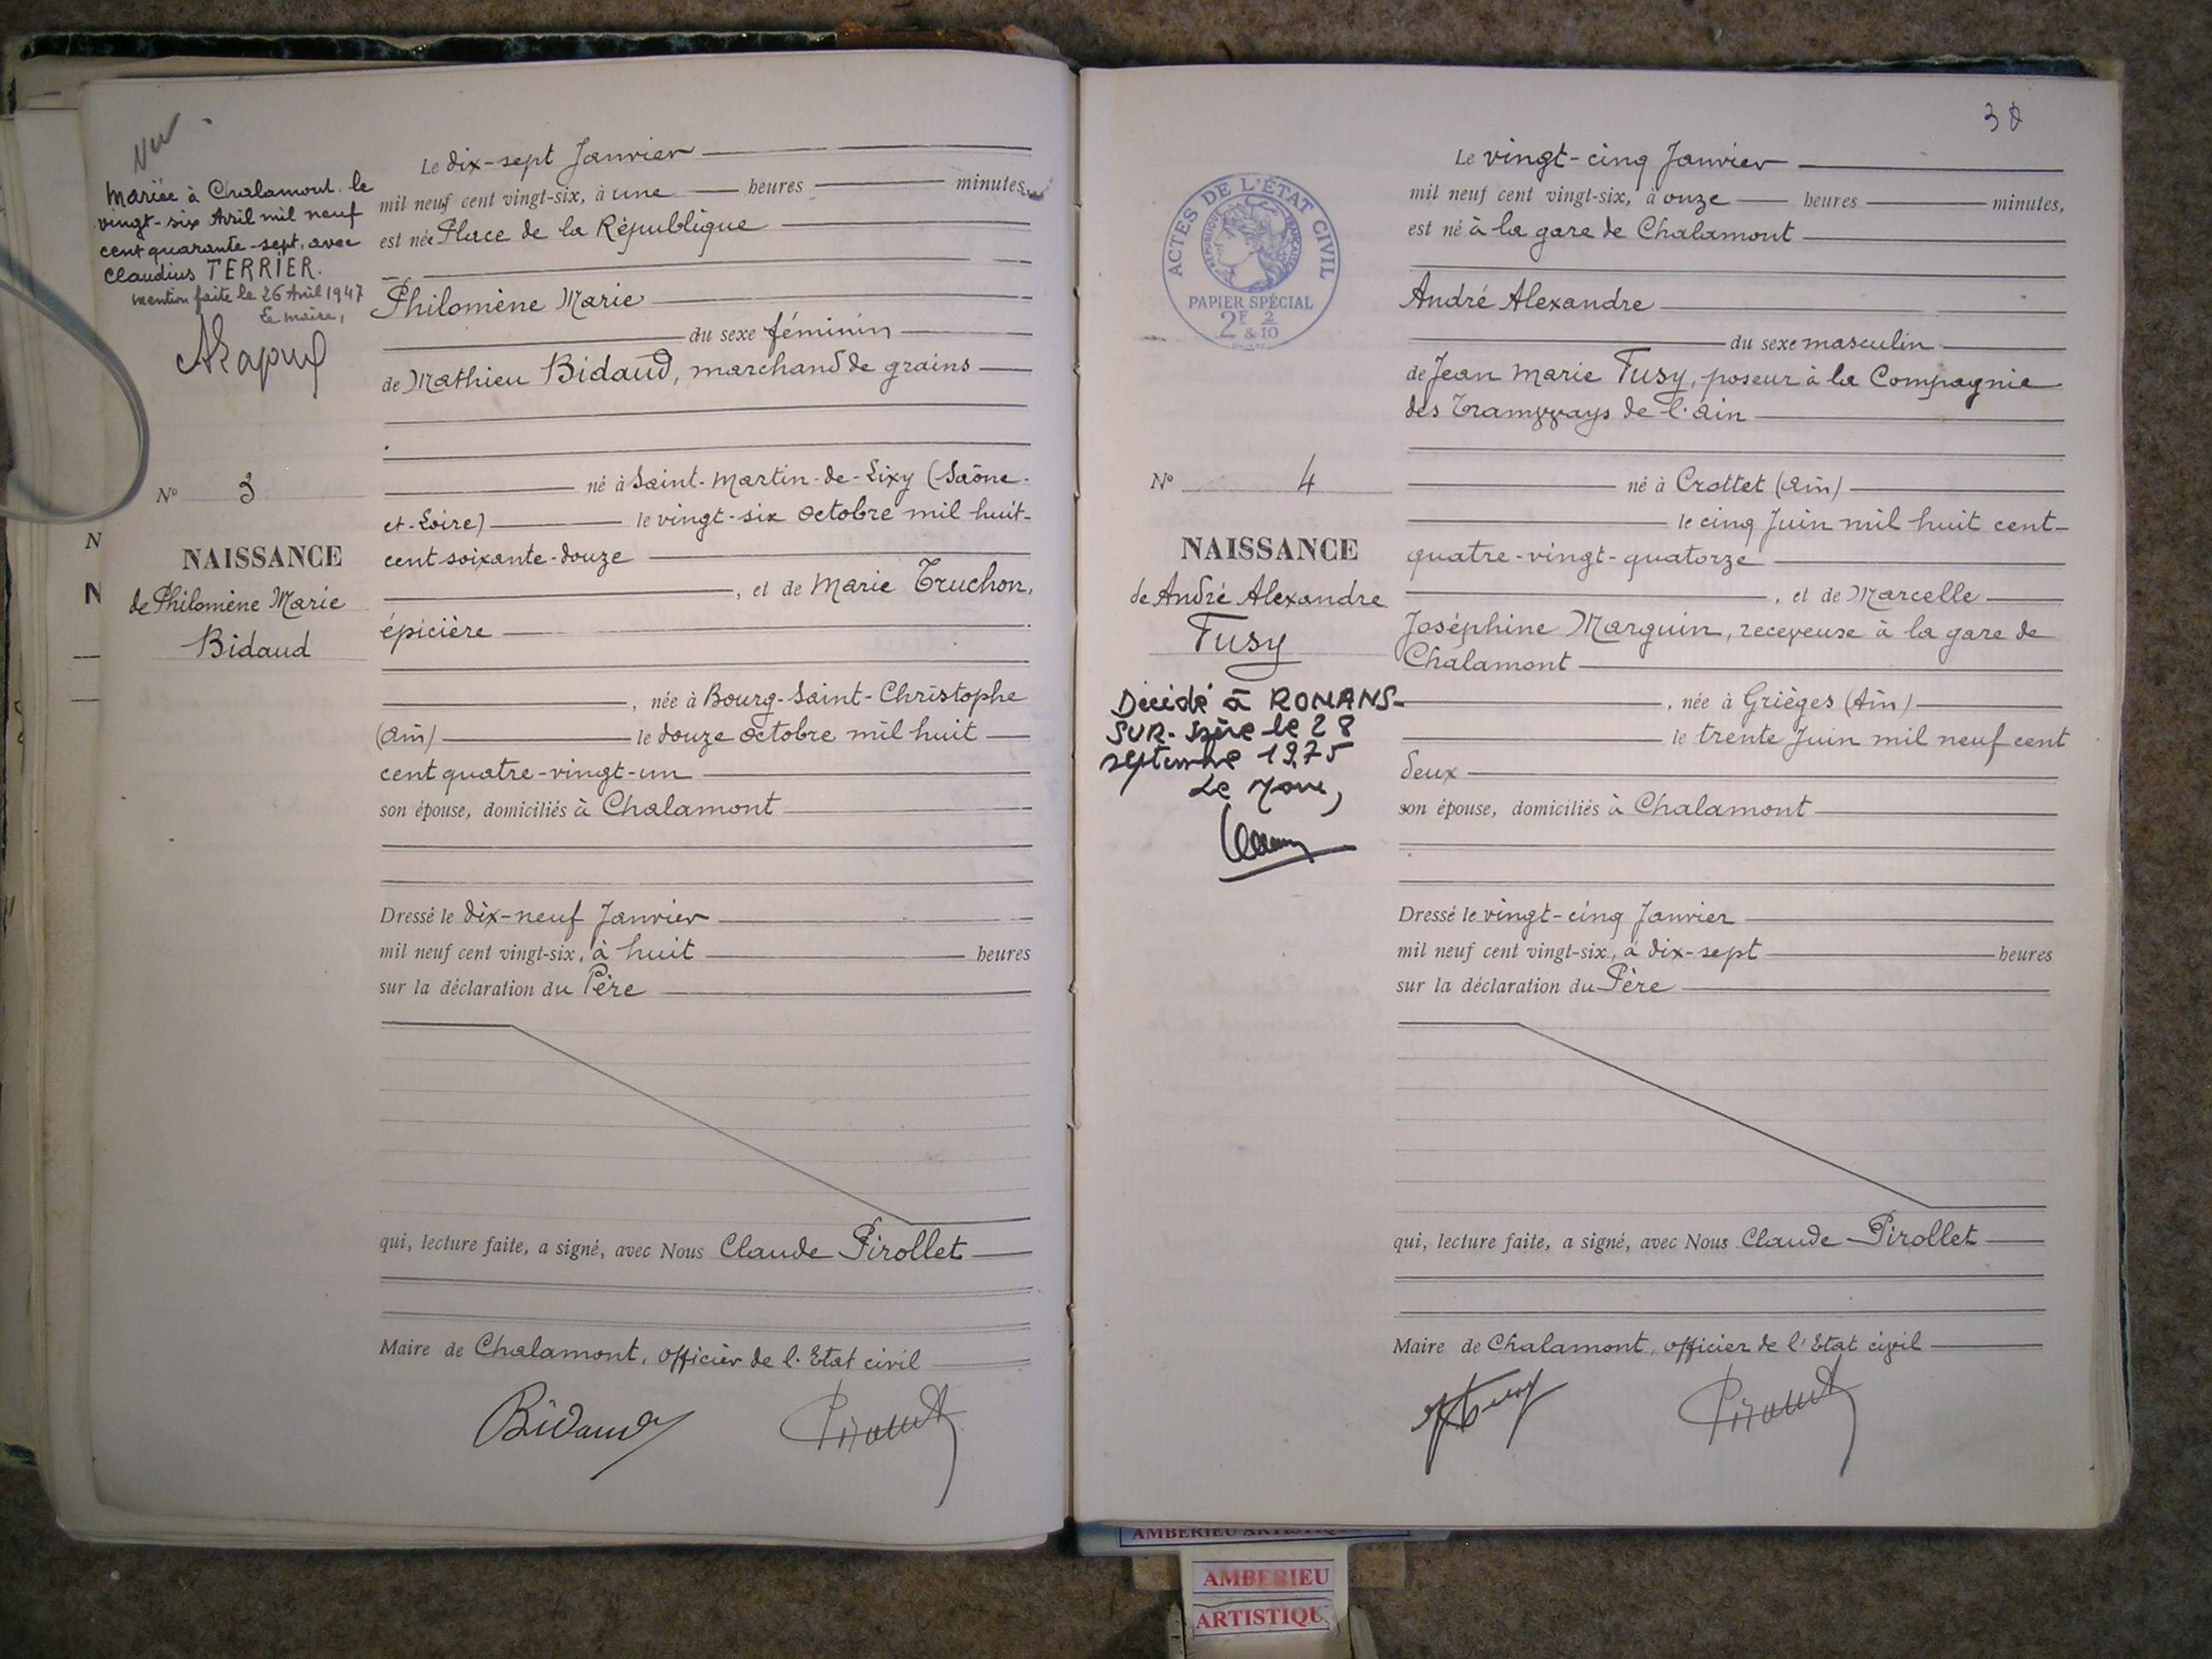 Vu
Mariée à Chalamont le
vingt-six Avril mil neuf
cent quarante-sept, avec
Claudius TERRIER.
mention faite le 26 Avril 1947
Le maire,
N° 3
NAISSANCE
de Philomène Marie
Bidaud
N
N
Le dix-sept Janvier
mil neuf cent vingt-six, à une heures minutes
est née Place de la République
Philomène Marie
du sexe féminin
de Mathieu Bidaud, marchand de grains
né à Saint-Martin-de-Lixy (Saône-
et-Loire) le vingt-six octobre mil huit-
cent soixante-douze
, et de Marie Truchon,
épicière
, née à Bourg-Saint-Christophe
(Ain) le douze octobre mil huit
cent quatre-vingt-un
son épouse, domiciliés à Chalamont
Dressé le dix-neuf Janvier
mil neuf cent vingt-six, à huit heures
sur la déclaration du Père
qui, lecture faite, a signé, avec Nous Claude Pirollet
Maire de Chalamont, officier de l'Etat civil
Bidaud Pirollet
30
ACTES DE L'ÉTAT CIVIL
RÉPUBLIQUE FRANÇAISE
PAPIER SPÉCIAL
2F 2
& 10
N° 4
NAISSANCE
de André Alexandre
Fusy
Décédé à ROMANS-
SUR-Isère le 28
septembre 1975
Le Maire,
Le vingt-cinq Janvier
mil neuf cent vingt-six, à onze heures minutes,
est né à la gare de Chalamont
André Alexandre
du sexe masculin
de Jean Marie Fusy, poseur à la Compagnie
des Tramways de l'Ain
né à Crottet (Ain)
le cinq Juin mil huit cent-
quatre-vingt-quatorze
, et de Marcelle
Joséphine Marguin, receveuse à la gare de
Chalamont
, née à Grièges (Ain)
le trente Juin mil neuf cent
deux
son épouse, domiciliés à Chalamont
Dressé le vingt-cinq Janvier
mil neuf cent vingt-six, à dix-sept heures
sur la déclaration du Père
qui, lecture faite, a signé, avec Nous Claude Pirollet
Maire de Chalamont, officier de l'Etat civil
Fusy Pirollet
AMBERIEU
AMBERIEU
ARTISTIQU